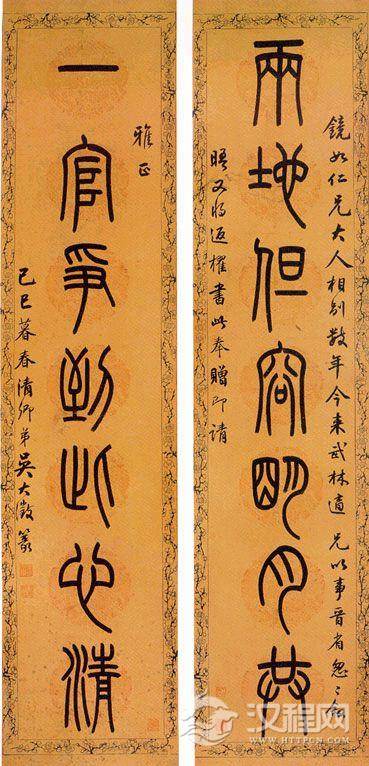 鏡如仁兄大人相别数年今来武林適 兄以事晋省怱〻一
兩地但容明月共
晤又将返櫂書此奉贈即請
雅正
一官爭到此心清
己巳暮春清卿弟吴大澂篆
汉程网
WWW.HTTPCN.COM